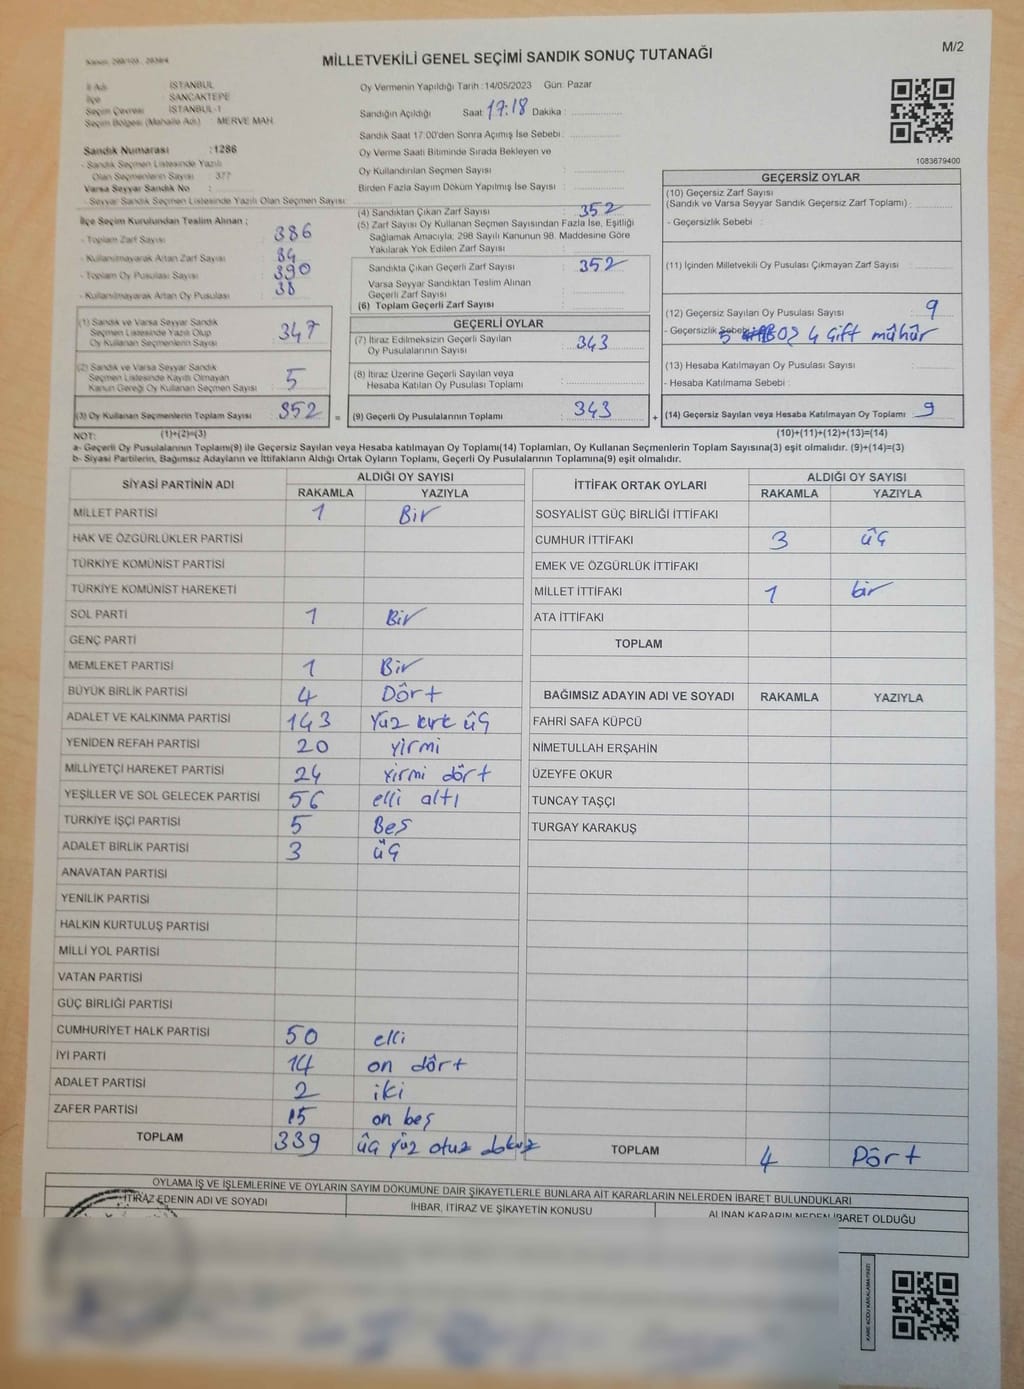 MİLLETVEKİLİ GENEL SEÇİMİ SANDIK SONUÇ TUTANAĞI
M/2
İl Adı : İSTANBUL
İlçe : SANCAKTEPE
Seçim Çevresi : İSTANBUL-1
Seçim Bölgesi (Mahalle Adı) : MERVE MAH.
Sandık Numarası :1286
- Sandık Seçmen Listesinde Yazılı
Olan Seçmenlerin Sayısı : 377
Varsa Seyyar Sandık No :
- Seyyar Sandık Seçmen Listesinde Yazılı Olan Seçmen Sayısı :
Oy Vermenin Yapıldığı Tarih :14/05/2023 Gün: Pazar
Sandığın Açıldığı Saat 17:18 Dakika :
Sandık Saat 17:00'den Sonra Açılmış İse Sebebi :
Oy Verme Saati Bitiminde Sırada Bekleyen ve
Oy Kullandırılan Seçmen Sayısı :
Birden Fazla Sayım Döküm Yapılmış İse Sayısı :
1083679400
İlçe Seçim Kurulundan Teslim Alınan ;
- Toplam Zarf Sayısı : 386
- Kullanılmayarak Artan Zarf Sayısı : 34
- Toplam Oy Pusulası Sayısı : 390
- Kullanılmayarak Artan Oy Pusulası : 38
(1) Sandık ve Varsa Seyyar Sandık
Seçmen Listesinde Yazılı Olup
Oy Kullanan Seçmenlerin Sayısı : 347
(2) Sandık ve Varsa Seyyar Sandık
Seçmen Listesinde Kayıtlı Olmayan
Kanun Gereği Oy Kullanan Seçmen Sayısı : 5
(3) Oy Kullanan Seçmenlerin Toplam Sayısı : 352
(4) Sandıktan Çıkan Zarf Sayısı : 352
(5) Zarf Sayısı Oy Kullanan Seçmen Sayısından Fazla İse, Eşitliği
Sağlamak Amacıyla; 298 Sayılı Kanunun 98. Maddesine Göre
Yakılarak Yok Edilen Zarf Sayısı :
Sandıkta Çıkan Geçerli Zarf Sayısı : 352
Varsa Seyyar Sandıktan Teslim Alınan
Geçerli Zarf Sayısı :
(6) Toplam Geçerli Zarf Sayısı :
GEÇERLİ OYLAR
(7) İtiraz Edilmeksizin Geçerli Sayılan
Oy Pusulalarının Sayısı : 343
(8) İtiraz Üzerine Geçerli Sayılan veya
Hesaba Katılan Oy Pusulası Toplamı :
= (9) Geçerli Oy Pusulalarının Toplamı : 343
GEÇERSİZ OYLAR
(10) Geçersiz Zarf Sayısı
(Sandık ve Varsa Seyyar Sandık Geçersiz Zarf Toplamı) :
- Geçersizlik Sebebi :
(11) İçinden Milletvekili Oy Pusulası Çıkmayan Zarf Sayısı :
(12) Geçersiz Sayılan Oy Pusulası Sayısı : 9
- Geçersizlik Sebebi : 5 4 Çift mühür
(13) Hesaba Katılmayan Oy Pusulası Sayısı :
- Hesaba Katılmama Sebebi :
+ (14) Geçersiz Sayılan veya Hesaba Katılmayan Oy Toplamı : 9
NOT: (1)+(2)=(3)
(10)+(11)+(12)+(13)=(14)
a- Geçerli Oy Pusulalarının Toplamı(9) ile Geçersiz Sayılan veya Hesaba katılmayan Oy Toplamı(14) Toplamları, Oy Kullanan Seçmenlerin Toplam Sayısına(3) eşit olmalıdır. (9)+(14)=(3)
b- Siyasi Partilerin, Bağımsız Adayların ve İttifakların Aldığı Ortak Oyların Toplamı, Geçerli Oy Pusulalarının Toplamına(9) eşit olmalıdır.
SİYASİ PARTİNİN ADI ALDIĞI OY SAYISI
RAKAMLA YAZIYLA
MİLLET PARTİSİ 1 Bir
HAK VE ÖZGÜRLÜKLER PARTİSİ
TÜRKİYE KOMÜNİST PARTİSİ
TÜRKİYE KOMÜNİST HAREKETİ
SOL PARTİ 1 Bir
GENÇ PARTİ
MEMLEKET PARTİSİ 1 Bir
BÜYÜK BİRLİK PARTİSİ 4 Dört
ADALET VE KALKINMA PARTİSİ 143 Yüz kırk üç
YENİDEN REFAH PARTİSİ 20 Yirmi
MİLLİYETÇİ HAREKET PARTİSİ 24 Yirmi dört
YEŞİLLER VE SOL GELECEK PARTİSİ 56 elli altı
TÜRKİYE İŞÇİ PARTİSİ 5 Beş
ADALET BİRLİK PARTİSİ 3 üç
ANAVATAN PARTİSİ
YENİLİK PARTİSİ
HALKIN KURTULUŞ PARTİSİ
MİLLİ YOL PARTİSİ
VATAN PARTİSİ
GÜÇ BİRLİĞİ PARTİSİ
CUMHURİYET HALK PARTİSİ 50 elli
İYİ PARTİ 14 on dört
ADALET PARTİSİ 2 iki
ZAFER PARTİSİ 15 on beş
TOPLAM 339 üç yüz otuz dokuz
İTTİFAK ORTAK OYLARI ALDIĞI OY SAYISI
RAKAMLA YAZIYLA
SOSYALİST GÜÇ BİRLİĞİ İTTİFAKI
CUMHUR İTTİFAKI 3 üç
EMEK VE ÖZGÜRLÜK İTTİFAKI
MİLLET İTTİFAKI 1 bir
ATA İTTİFAKI
TOPLAM
BAĞIMSIZ ADAYIN ADI VE SOYADI RAKAMLA YAZIYLA
FAHRİ SAFA KÜPCÜ
NİMETULLAH ERŞAHİN
ÜZEYFE OKUR
TUNCAY TAŞÇI
TURGAY KARAKUŞ
TOPLAM 4 Dört
OYLAMA İŞ VE İŞLEMLERİNE VE OYLARIN SAYIM DÖKÜMÜNE DAİR ŞİKAYETLERLE BUNLARA AİT KARARLARIN NELERDEN İBARET BULUNDUKLARI
İTİRAZ EDENİN ADI VE SOYADI İHBAR, İTİRAZ VE ŞİKAYETİN KONUSU ALINAN KARARIN NEDEN İBARET OLDUĞU